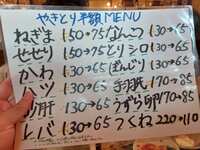 やきとり半額MENU
ねぎま 150→75 なんこつ 130→65
せせり 150→75 とりシロ 130→65
かわ 130→65 ぼんじり 130→65
ハツ 130→65 手羽先 170→85
砂肝 130→65 うずら卵 170→85
レバ 130→65 つくね 220→110